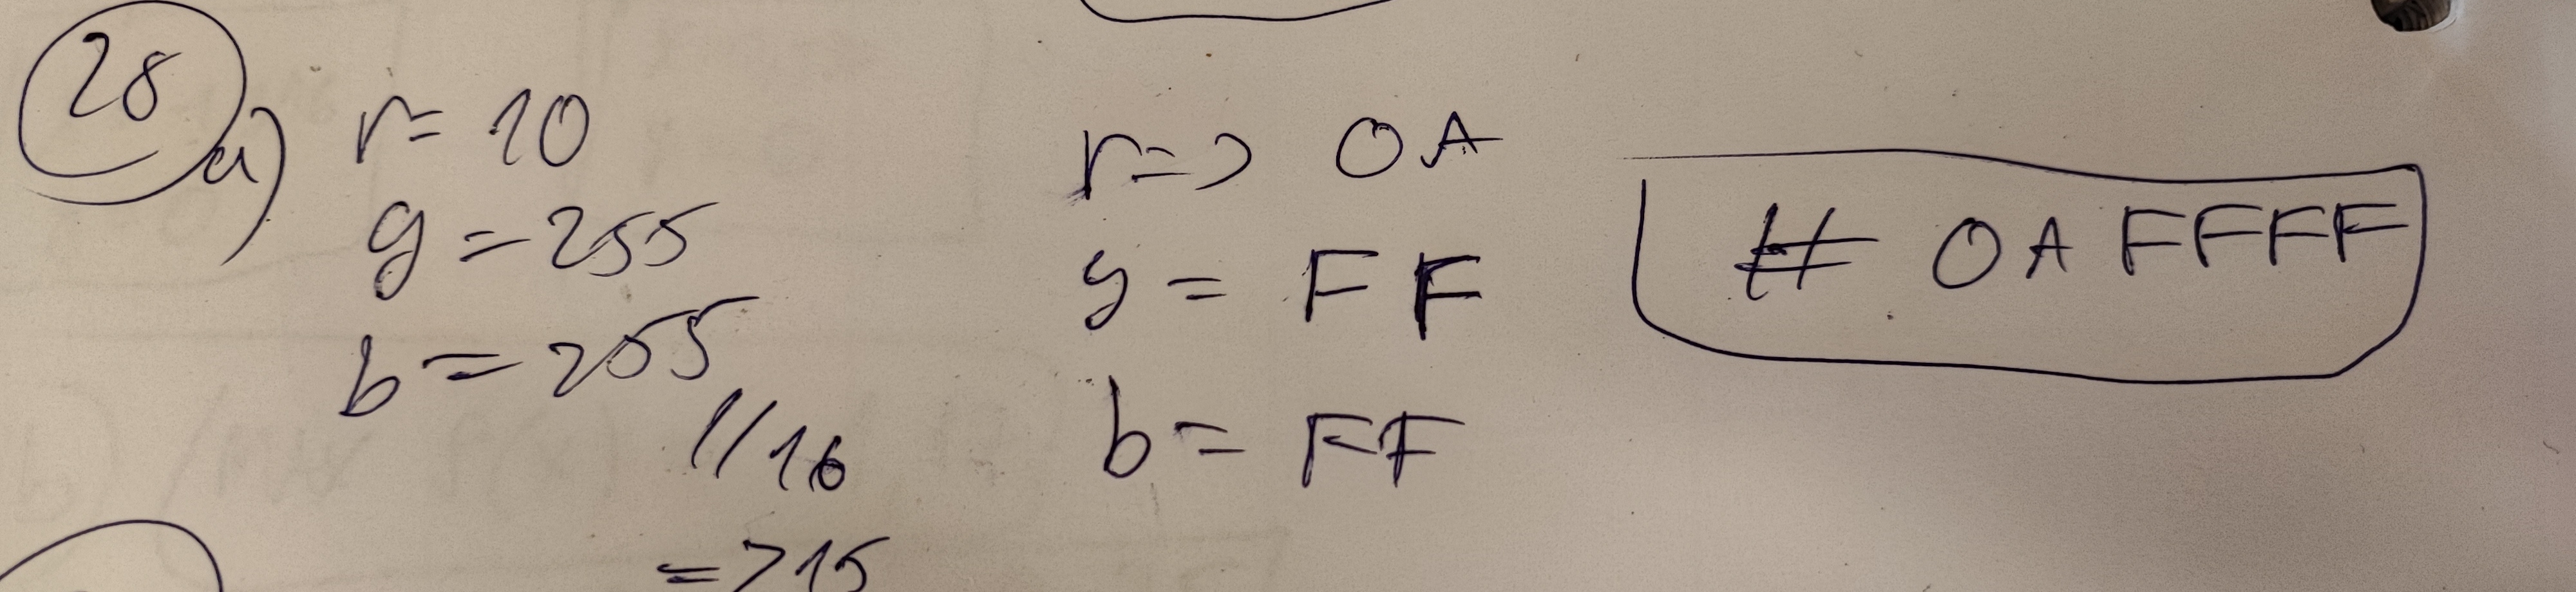 28 a) r = 10
g = 255
b = 255
//16
=> 15
r => 0A
g = FF
b = FF
# 0AFFFF